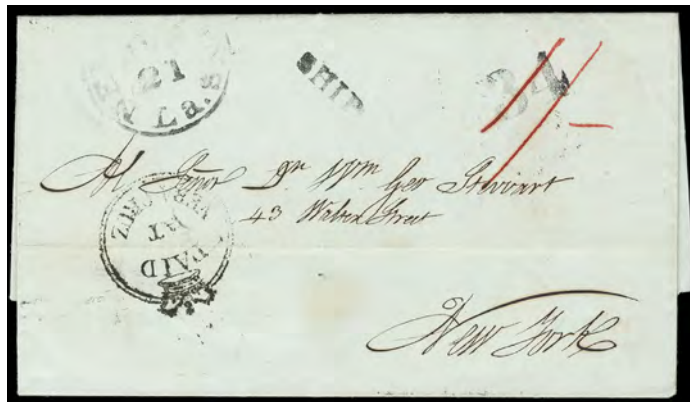 21
La.
SHIP
34
1/-
Al Señor Dn Wm Geo Stewart
43 Water Street
PAID
AT
VERA CRUZ
New York